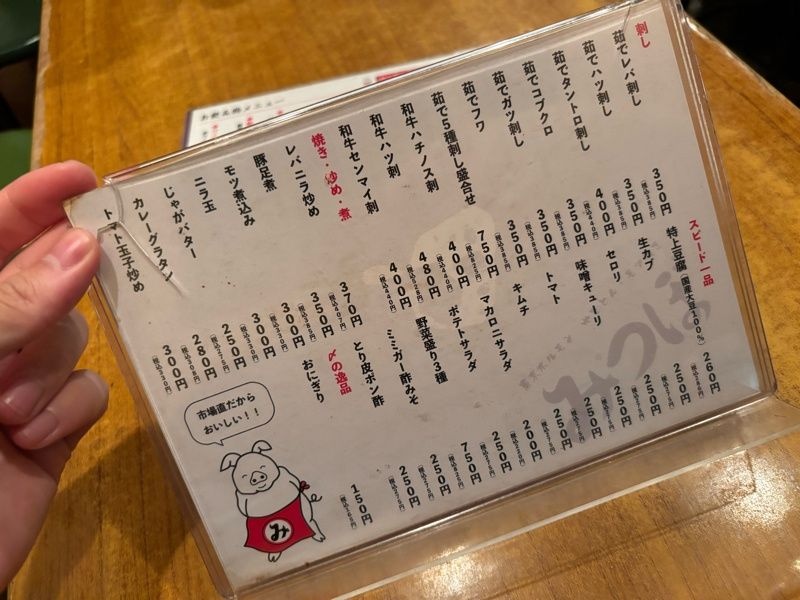 刺し
茹でレバ刺し 350円(税込385円)
茹でハツ刺し 350円(税込385円)
茹でタントロ刺し 400円(税込440円)
茹でコブクロ 350円(税込385円)
茹でガツ刺し 350円(税込385円)
茹でフワ 350円(税込385円)
茹で5種刺し盛合せ 750円(税込825円)
和牛ハチノス刺 400円(税込440円)
和牛ハツ刺 480円(税込528円)
和牛センマイ刺 400円(税込440円)
焼き・炒め・煮
レバニラ炒め 370円(税込407円)
豚足煮 350円(税込385円)
モツ煮込み 300円(税込330円)
ニラ玉 300円(税込330円)
じゃがバター 250円(税込275円)
カレーグラタン 280円(税込308円)
トマト玉子炒め 300円(税込330円)
スピード一品
特上豆腐(国産大豆100%) 260円(税込286円)
生カブ 250円(税込275円)
セロリ 250円(税込275円)
味噌キューリ 250円(税込275円)
トマト 250円(税込275円)
キムチ 250円(税込275円)
マカロニサラダ 200円(税込220円)
ポテトサラダ 250円(税込275円)
野菜盛り3種 750円(税込825円)
ミミガー酢みそ 250円(税込275円)
とり皮ポン酢 250円(税込275円)
〆の逸品
おにぎり 150円(税込165円)
市場直だから
おいしい！！
み
みつぼ